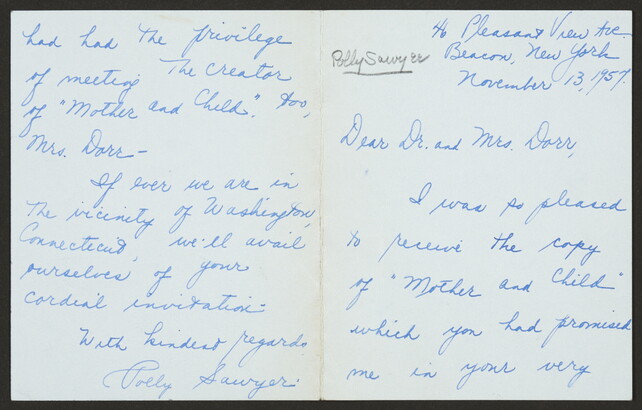 46 Pleasant View Ave.
Beacon, New York
November 13, 1957.
Polly Sawyer
Dear Dr. and Mrs. Dorr,
I was so pleased
to receive the copy
of "Mother and Child"
which you had promised
me in your very
had had the privilege
of meeting the creator
of "Mother and Child". too,
Mrs. Dorr—
If ever we are in
the vicinity of Washington,
Connecticut, we'll avail
ourselves of your
cordial invitation.
With kindest regards,
Polly Sawyer.